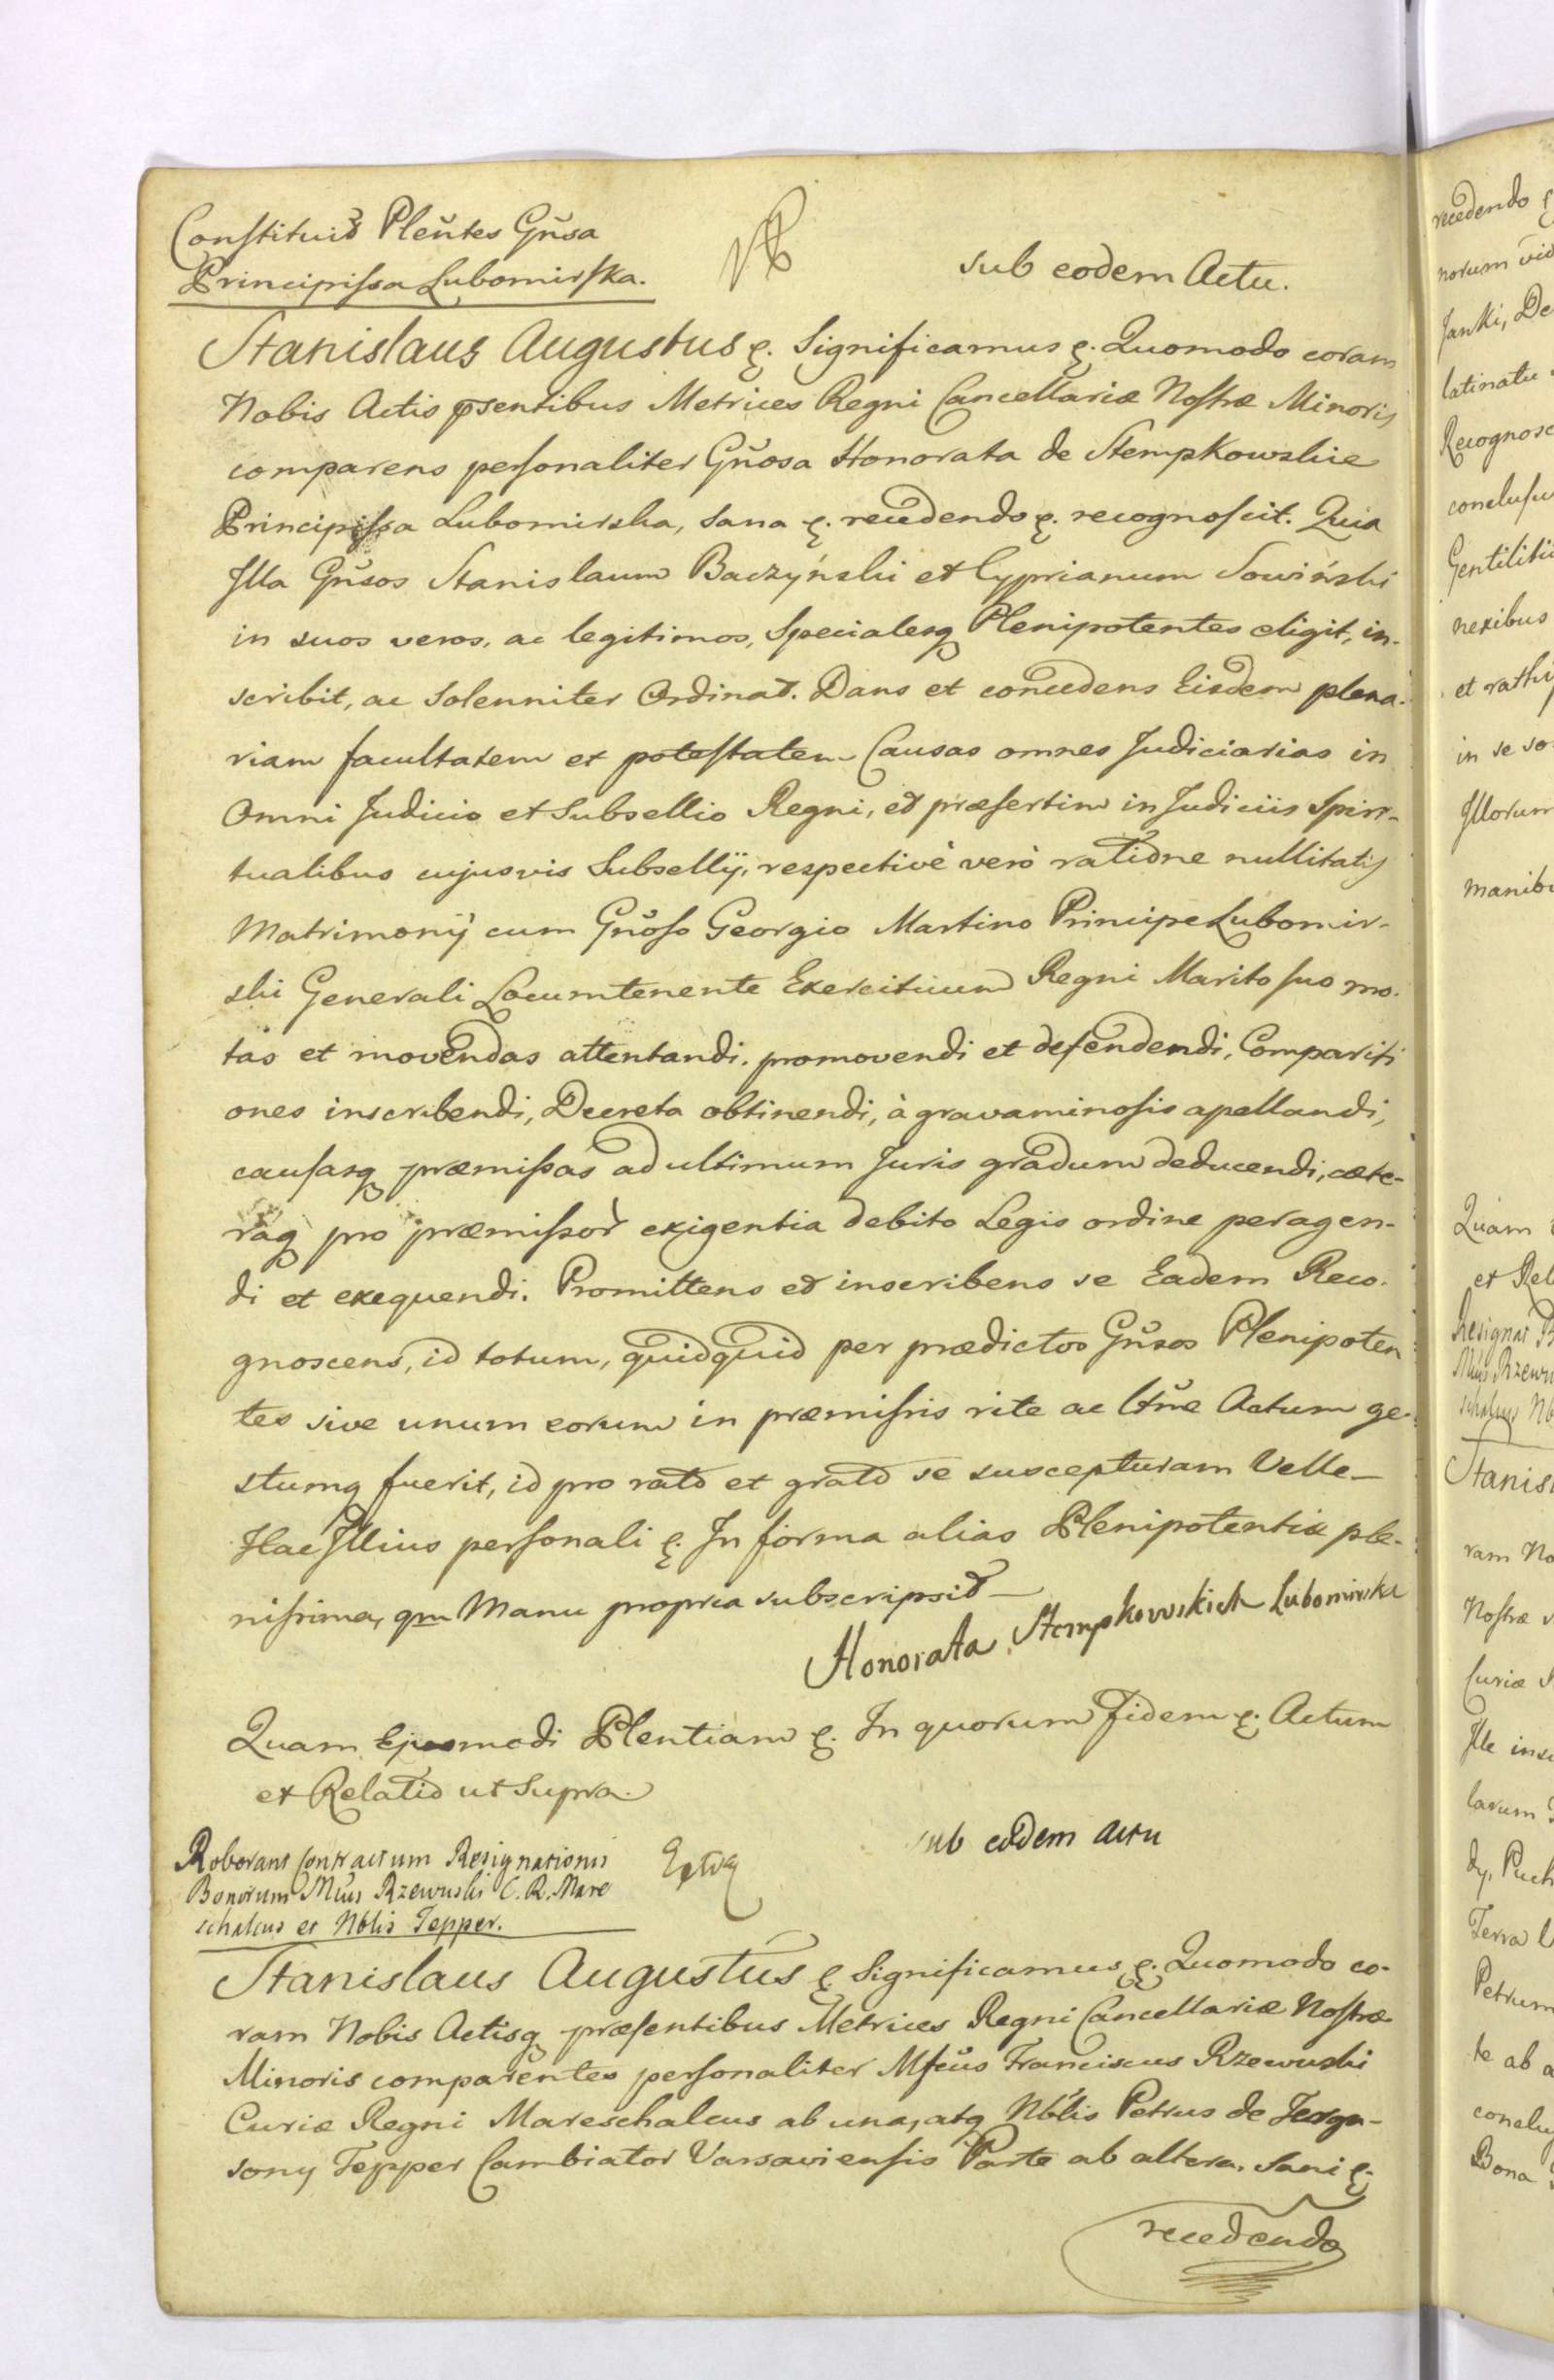 Constituit Pleñtes Gñsa
Principissa Lubomirska.
sub eodem Actu.
Stanislaus Augustus &. Significamus &. Quomodo coram
Nobis Actis psentibus Metrices Regni Cancellariæ Nostræ Minoris
comparens personaliter Gñosa Honorata de Stempkowskie
Principissa Lubomirska, sana &. recedendo &. recognoscit. Quia
Illa Gñsos Stanislaum Baczyński et Cyprianum Sowiński
in suos veros, ac legitimos, Specialesq Plenipotentes eligit, in-
scribit, ac Solenniter Ordinat. Dans et concedens Eisdem plena-
riam facultatem et potestatem Causas omnes Judiciarias in
Omni Judicio et Subsellio Regni, et præsertim in Judiciis Spiri-
tualibus cujusvis Subsellij, respectivè verò ratione nullitatis
Matrimonij cum Gñoso Georgio Martino Principe Lubomir-
ski Generali Locumtenente Exercituum Regni Marito suo mo-
tas et movendas attentandi, promovendi et defendendi, Compariti
ones inscribendi, Decreta obtinendi, à gravaminosis apellandi,
causasq præmissas ad ultimum Juris gradum deducendi, cæte-
raq pro præmissor exigentia debito Legis ordine peragen-
di et exequendi. Promittens et inscribens se Eadem Reco-
gnoscens, id totum, quidquid per prædictos Gñsos Plenipoten
tes sive unum eorum in præmissis rite ac ltñe Actum ge-
stumq fuerit, id pro rato et grato se suscepturam Velle—
Hac Illius personali &. In forma alias Plenipotentiæ ple-
nissima, qm Manu propria subscripsit—
Honorata Stempkowskich Lubomirska
Quam Ejusmodi Plentiam &. In quorum Fidem &. Actum
et Relatio ut Supra.
Roborant Contractum Resignationis
Bonorum Mfcus Rzewuski C. R. Mare
schalcus et Nblis Tepper.
sub eodem actu
Stanislaus Augustus & Significamus &. Quomodo co-
ram Nobis Actisq præsentibus Metrices Regni Cancellariæ Nostræ
Minoris comparentes personaliter Mfcus Franciscus Rzewuski
Curiæ Regni Mareschalcus ab una, atq Nblis Petrus de Fergu-
sony Tepper Cambiator Varsaviensis Parte ab altera, sani &.
recedendo